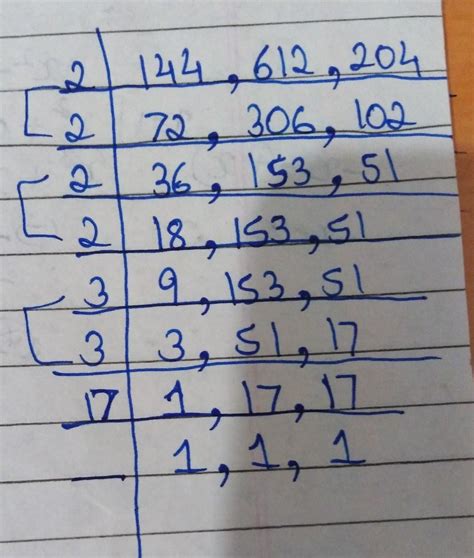 2 144, 612, 204
2 72, 306, 102
2 36, 153, 51
2 18, 153, 51
3 9, 153, 51
3 3, 51, 17
17 1, 17, 17
1, 1, 1